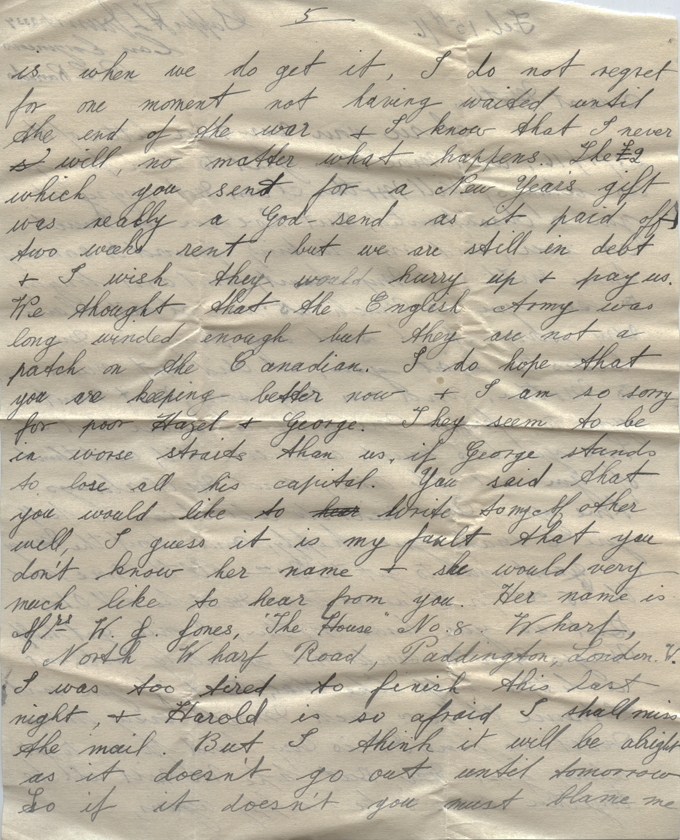 5
is when we do get it, I do not regret
for one moment not having waited until
the end of the war & I know that I never
will, no matter what happens. The £2
which you send for a New Years gift
was really a God-send as it paid off
two weeks rent, but we are still in debt
& I wish they would hurry up & pay us.
We thought that the English Army was
long winded enough but they are not a
patch on the Canadian. I do hope that
you are keeping better now & I am so sorry
for poor Hazel & George. They seem to be
in worse straids than us, if George stands
to lose all his capital. You said that
you would like to hear write to my Mother
well, I guess it is my fault that you
don't know her name & she would very
much like to hear from you. Her name is
Mrs W. J. Jones, "The House" No. 8. Wharf,
North Wharf Road, Paddington, London. W.
I was too tired to finish this last
night, & Harold is so afraid I shall miss
the mail. But I think it will be alright
as it doesn't go out until tomorrow
So if it doesn't you must blame me